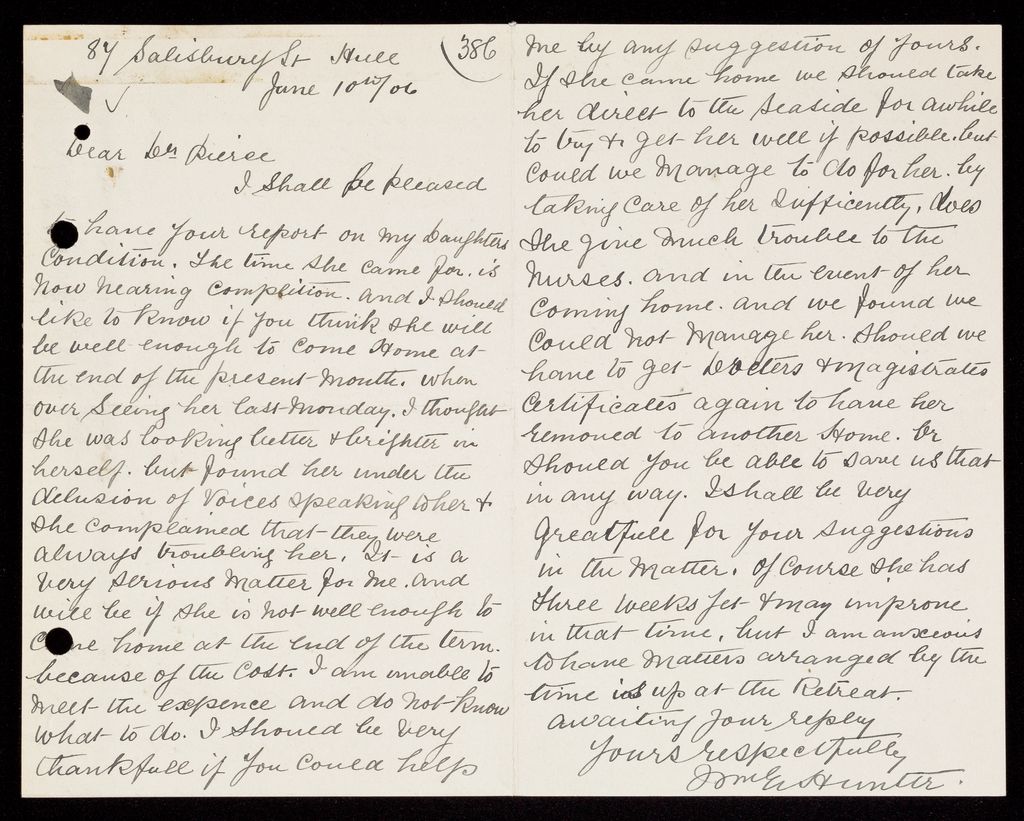 84 Salisbury St Hull
386
June 10th/06
Dear Dr Pierce
I Shall be pleased
to have your report on my Daughters
Condition. The time She came for. is
Now nearing complition. and I should
like to know if you think she will
be well enough to come Home at
the end of the present Month. when
over Seeing her last Monday. I thought
She was looking better & brighter in
herself. but found her under the
delusion of Voices speaking to her &
she complained that they were
always troubling her. It is a
very serious Matter for Me. and
will be if she is not well enough to
Come home at the end of the term.
because of the Cost. I am unable to
meet the expence and do not know
what to do. I Should be very
thankfull if you could help
me by any suggestion of yours.
If she came home we should take
her direct to the seaside for awhile
to try & get her well if possible. but
Could we Manage to do for her. by
taking Care of her Sufficently, does
She give Much trouble to the
Nurses. and in the event of her
Coming home. and we found we
Could not Manage her. Should we
have to get Docters & Magistrates
Certificates again to have her
removed to another Home. Or
Should you be able to save us that
in any way. I shall be very
greatfull for your suggestions
in the Matter. Of Course she has
three weeks yet & may improve
in that time, but I am anxeious
to have Matters arranged by the
time is up at the Retreat.
awaiting your repley
Yours respectfully
Wm E Hunter.